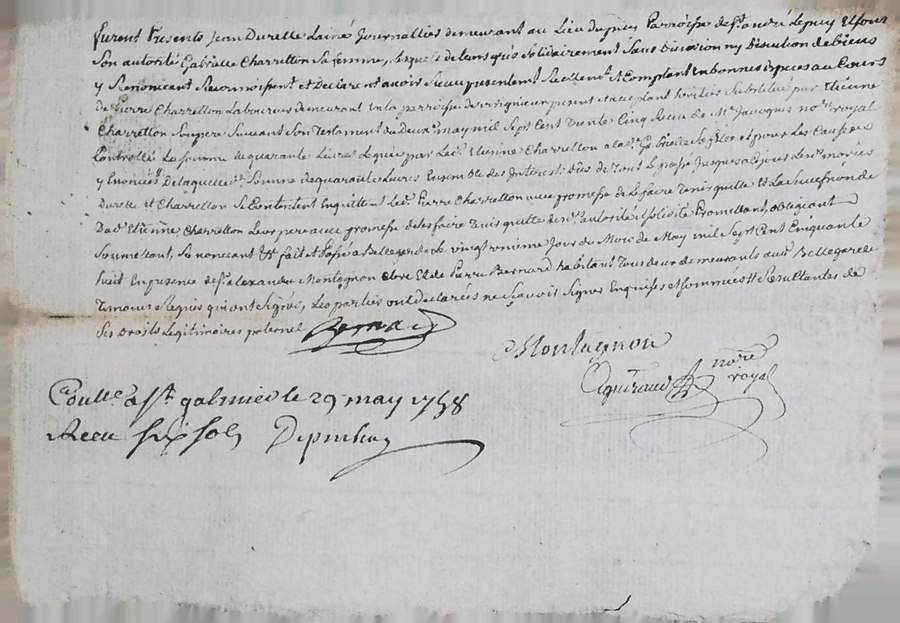 furent Presents Jean Durelle Lainé Journallier demeurant au Lieu du puy Parroisse de st andré Lepuy Et sous
Son autorité Gabrielle Charretton Sa femme, Lesquels de leurs grés Solidairement Sans Division ny Discution de biens
y Renoncant Reconnoissent et Declarent avoir Receu presentemt Réellemt et Comptant En bonnes Especes au Cours
de pierre Charretton Laboureur demeurant En la parroisse de present et acceptant heritier Substitué par Etienne
Charretton Son pere Suivant Son Testament du deux may mil Sept Cent Trente Cinq Receu de Me Jacoques nore royal
Controllé La Somme de quarante Livres Leguée par Ledt Etienne Charretton a lade Gabrielle Sa fille et pour Les Causes
y Enoncées De laquelle de Somme de quarante Livres Ensemble des Interest de tout Le passé Jusques a Ce jour Lesds mariés
Durelle Et Charretton Se Contentent En quittent Ledt Pierre Charretton avec promesse de Le faire Tenir quitte Et La Succession de
Dac Etienne Charretton Leur pere avec promesse de les faire Tenir quitte de Promettant, obligeant
Soumettant, Renoncant &c fait et Passé a Bellegarde Le vingt neuvieme Jour du Mois de May mil Sept Cent Cinquante
huit En presence de Sr alexandre Montagnon Clerc Et de Pierre Bernard habitant Tous deux demeurants audt Bellegarde
Temoins Requis qui ont Signé, Les parties ont declarées ne Sçavoir Signer Enquises et Sommées Resultantes de
Ses Droits Legitimaires paternel Bernard
Montagnon
nore
royal
Coulle a St galmier le 29 may 1758
Receu six sols Depuihay